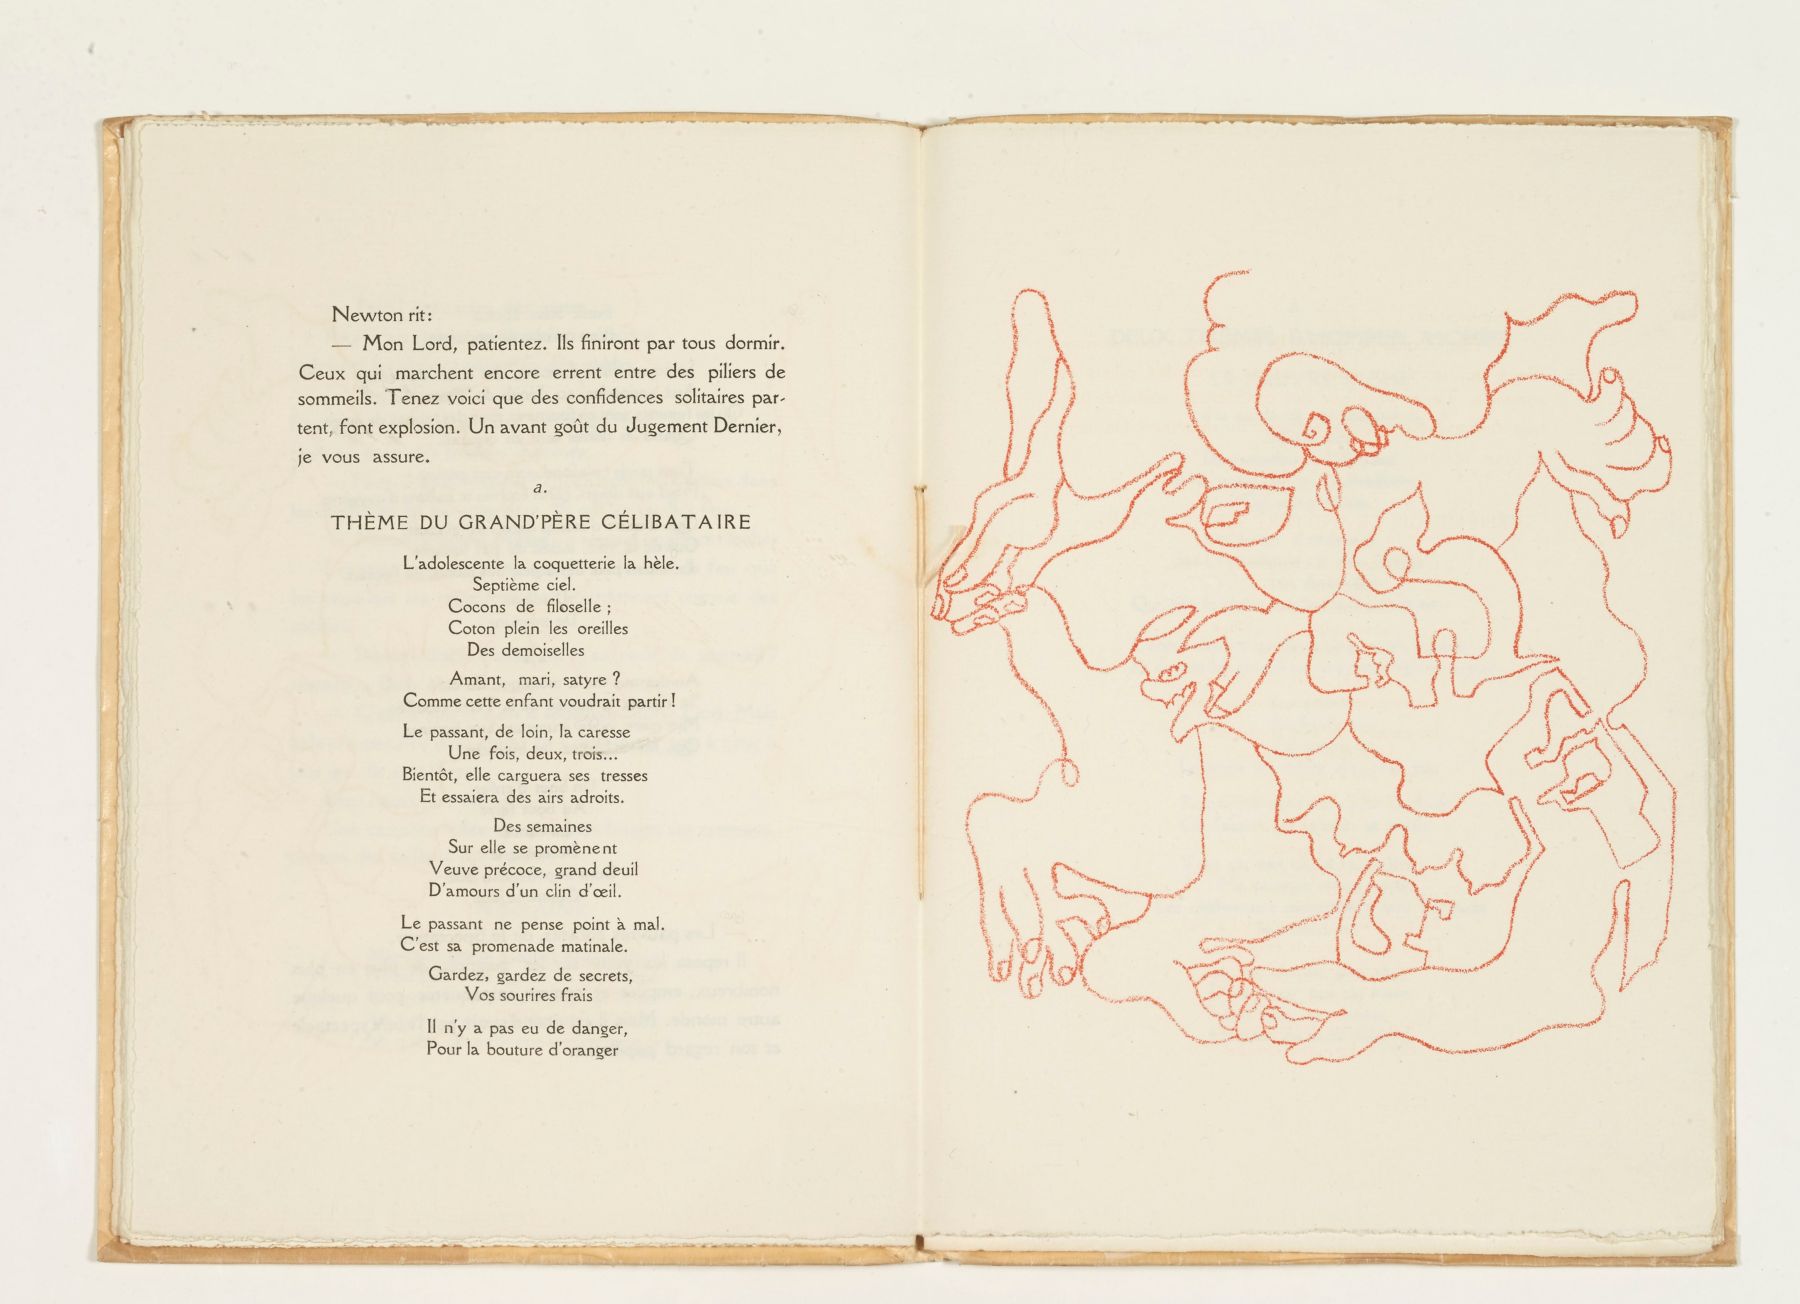 Newton rit:
— Mon Lord, patientez. Ils finiront par tous dormir.
Ceux qui marchent encore errent entre des piliers de
sommeils. Tenez voici que des confidences solitaires par-
tent, font explosion. Un avant goût du Jugement Dernier,
je vous assure.
a.
THÈME DU GRAND'PÈRE CÉLIBATAIRE
L'adolescente la coquetterie la hèle.
Septième ciel.
Cocons de filoselle ;
Coton plein les oreilles
Des demoiselles
Amant, mari, satyre ?
Comme cette enfant voudrait partir !
Le passant, de loin, la caresse
Une fois, deux, trois...
Bientôt, elle carguera ses tresses
Et essaiera des airs adroits.
Des semaines
Sur elle se promènent
Veuve précoce, grand deuil
D'amours d'un clin d'œil.
Le passant ne pense point à mal.
C'est sa promenade matinale.
Gardez, gardez de secrets,
Vos sourires frais
Il n'y a pas eu de danger,
Pour la bouture d'oranger